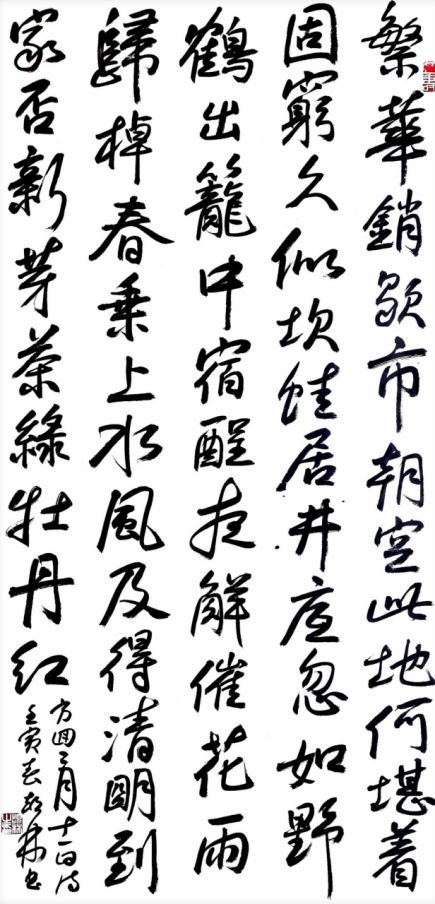 繁華銷歇市朝空此地何堪着
固窮久似坎蛙居井底忽如野
鶴出籠中宿酲夜解催花雨
歸棹春乘上水風及得清明到
家否新芽茶綠牡丹紅
方回三月十一日诗
壬寅春林书